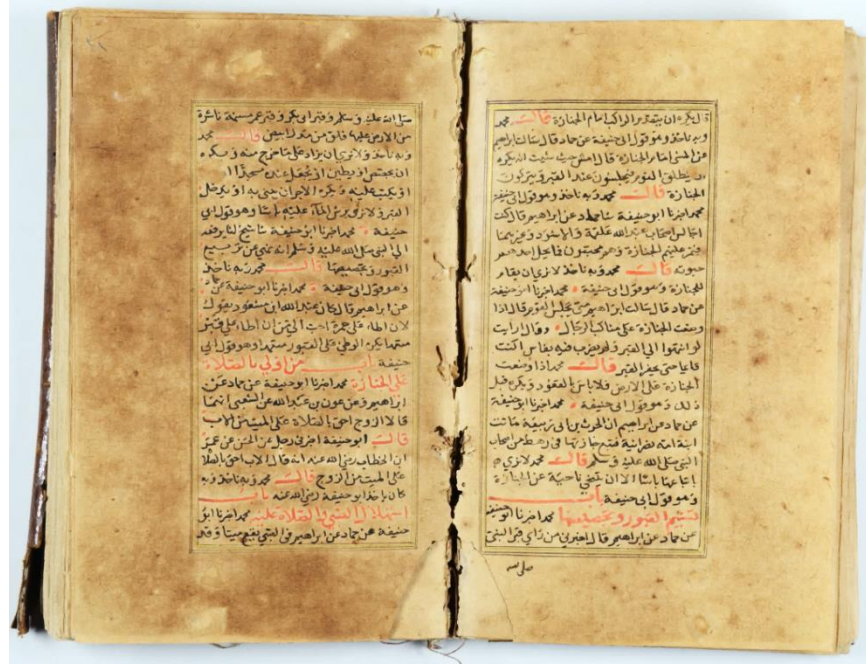 قال يكره ان يتقدم الراكب امام الجنازة قالــــ محمد
وبه ناخذ وهو قول ابي حنيفة عن حماد قال سالت ابراهيم
عن المشي امام الجنازة قال امش حيث شئت انما يكره
ان ينطلق القوم فيجلسون عند القبر ويتركون
الجنازة قالــــ محمد وبه ناخذ وهو قول ابي حنيفة
محمد اخبرنا ابو حنيفة ثنا حماد عن ابراهيم قال كنت
اجالس اصحاب عبد الله علقمة والاسود وغيرهما
فتمر عليهم الجنازة وهم محتبون فما يحل احد منهم
حبوته قالــــ محمد وبه ناخذ لا نري ان يقام
للجنازة وهو قول ابي حنيفة محمد اخبرنا ابو حنيفة
عن حماد قال سالت ابراهيم متى يجلس القوم قال اذا
وضعت الجنازة على مناكب الرجال وقال ارايت
لو انتهوا الي القبر ولم يضرب فيه بفاس اكنت
قائما حتى يحفر القبر قالــــ محمد اذا وضعت
الجنازة على الارض فلا باس بالقعود ويكره قبل
ذلك وهو قول ابي حنيفة محمد اخبرنا ابو حنيفة
عن حماد عن ابراهيم ان الحرث بن ابي ربيعة ماتت
ابنة امه نصرانية فتبع جنازتها في رهط من اصحاب
النبي صلى الله عليه وسلم قالــــ محمد لا نري
باتباعها باسا الا ان يتنحي ناحية عن الجنازة
وهو قول ابي حنيفة بابــــ
تسنيم القبور وتجصيصها محمد اخبرنا ابو حنيفة
عن حماد عن ابراهيم قال اخبرني من راي قبر النبي
صلى الله
صلى الله عليه وسلم وقبر ابي بكر وقبر عمر مسنمة ناشزة
من الارض عليها فلق من مدر ابيض قالــــ محمد
وبه ناخذ ولا نري ان يزاد على ما خرج منه ويكره
ان يجصص او يطين او يجعل عنده مسجدا
او يكتب عليه ويكره الاجر ان يبني به او يدخل
القبر ولا نري برش الماء عليه باسا وهو قول ابي
حنيفة محمد اخبرنا ابو حنيفة ثنا شيخ لنا يرفعه
الي النبي صلى الله عليه وسلم انه نهي عن تربيع
القبور وتجصيصها قالــــ محمد وبه ناخذ
وهو قول ابي حنيفة محمد اخبرنا ابو حنيفة عن حماد
عن ابراهيم قال كان عبد الله ابن مسعود يقول
لان اطاء على جمرة احب الي من ان اطاء على قبر
متعمدا يكره الوطي على القبور متعمدا وهو قول ابي
حنيفة بابــــ من اولي بالصلاة
على الجنازة محمد اخبرنا ابو حنيفة عن حماد عن
ابراهيم وعن عون بن عبد الله عن الشعبي انهما
قالا الزوج احق بالصلاة على الميت من الاب
قالــــ ابو حنيفة اخبرني رجل عن الحسن عن عمر
ابن الخطاب رضي الله عنه انه قال الاب احق بالصلاة
على الميت من الزوج قالــــ محمد وبه ناخذ وبه
كان ياخذ ابو حنيفة رضي الله عنه بابــــ
استهلال الصبي والصلاة عليه محمد اخبرنا ابو
حنيفة عن حماد عن ابراهيم في الصبي يقع ميتا وقد